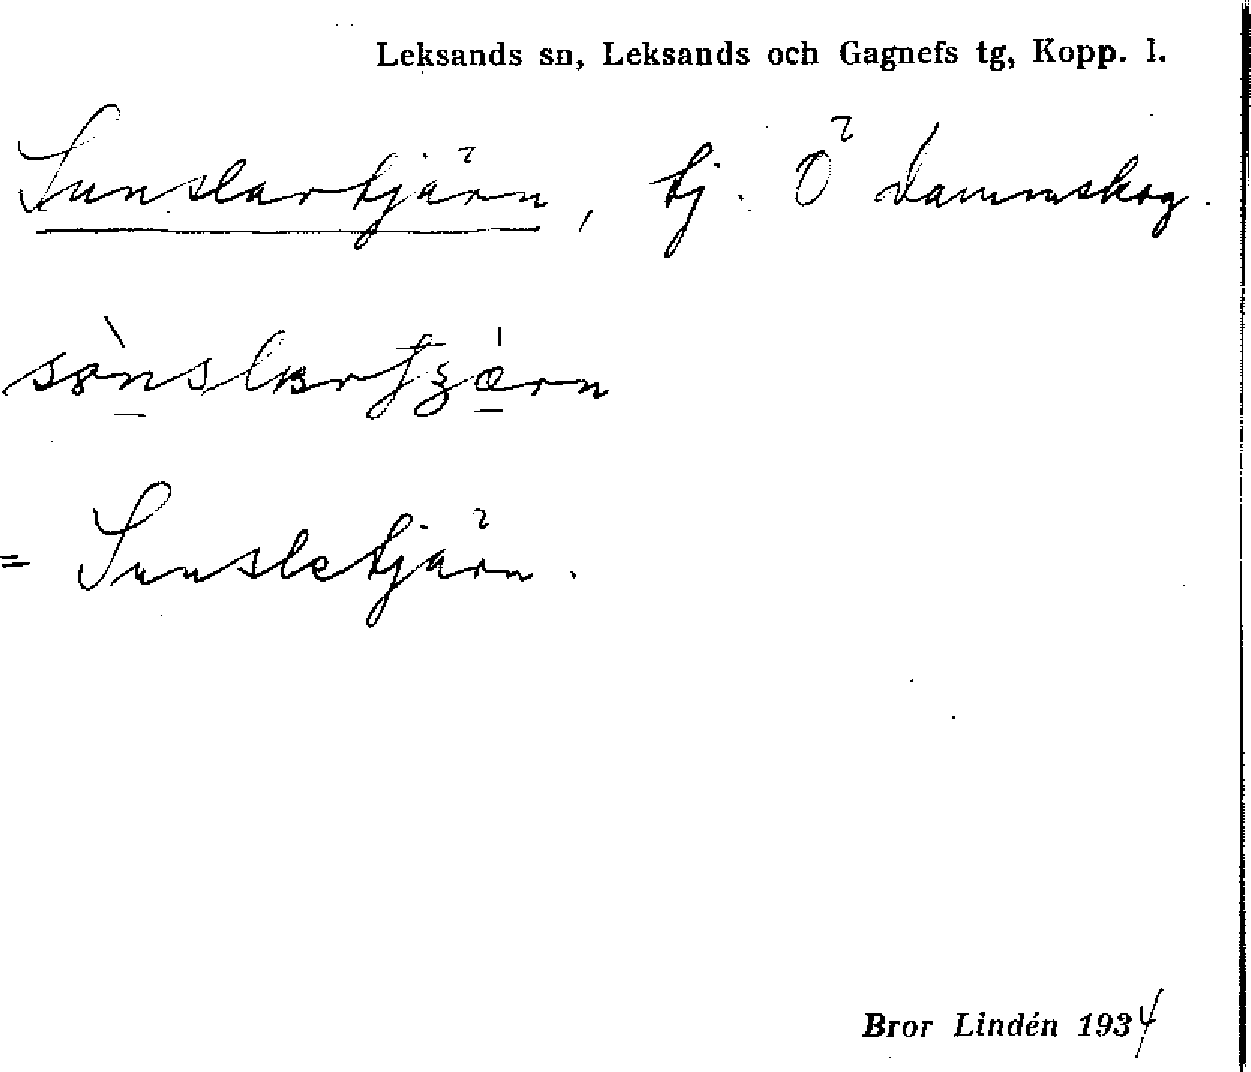 Leksands sn, Leksands och Gagnefs tg, Kopp. l.
Sunslartjärn, tj. Ö dammskog.
= Sunsletjärn.
Bror Lindén 1934